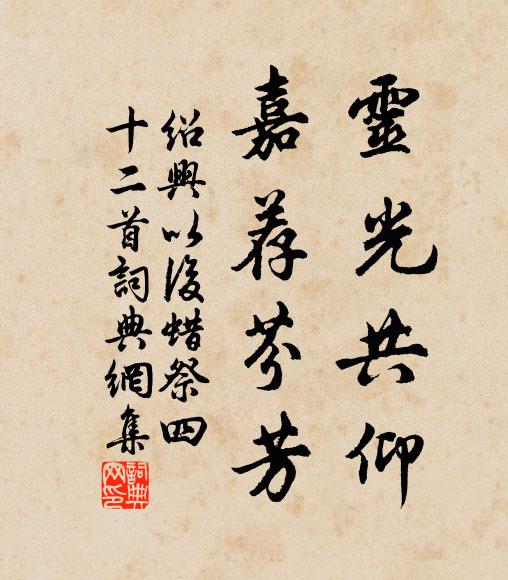 靈光共仰
嘉荐芬芳
紹興以後蜡祭四
十二首詞典網集
詞典網印